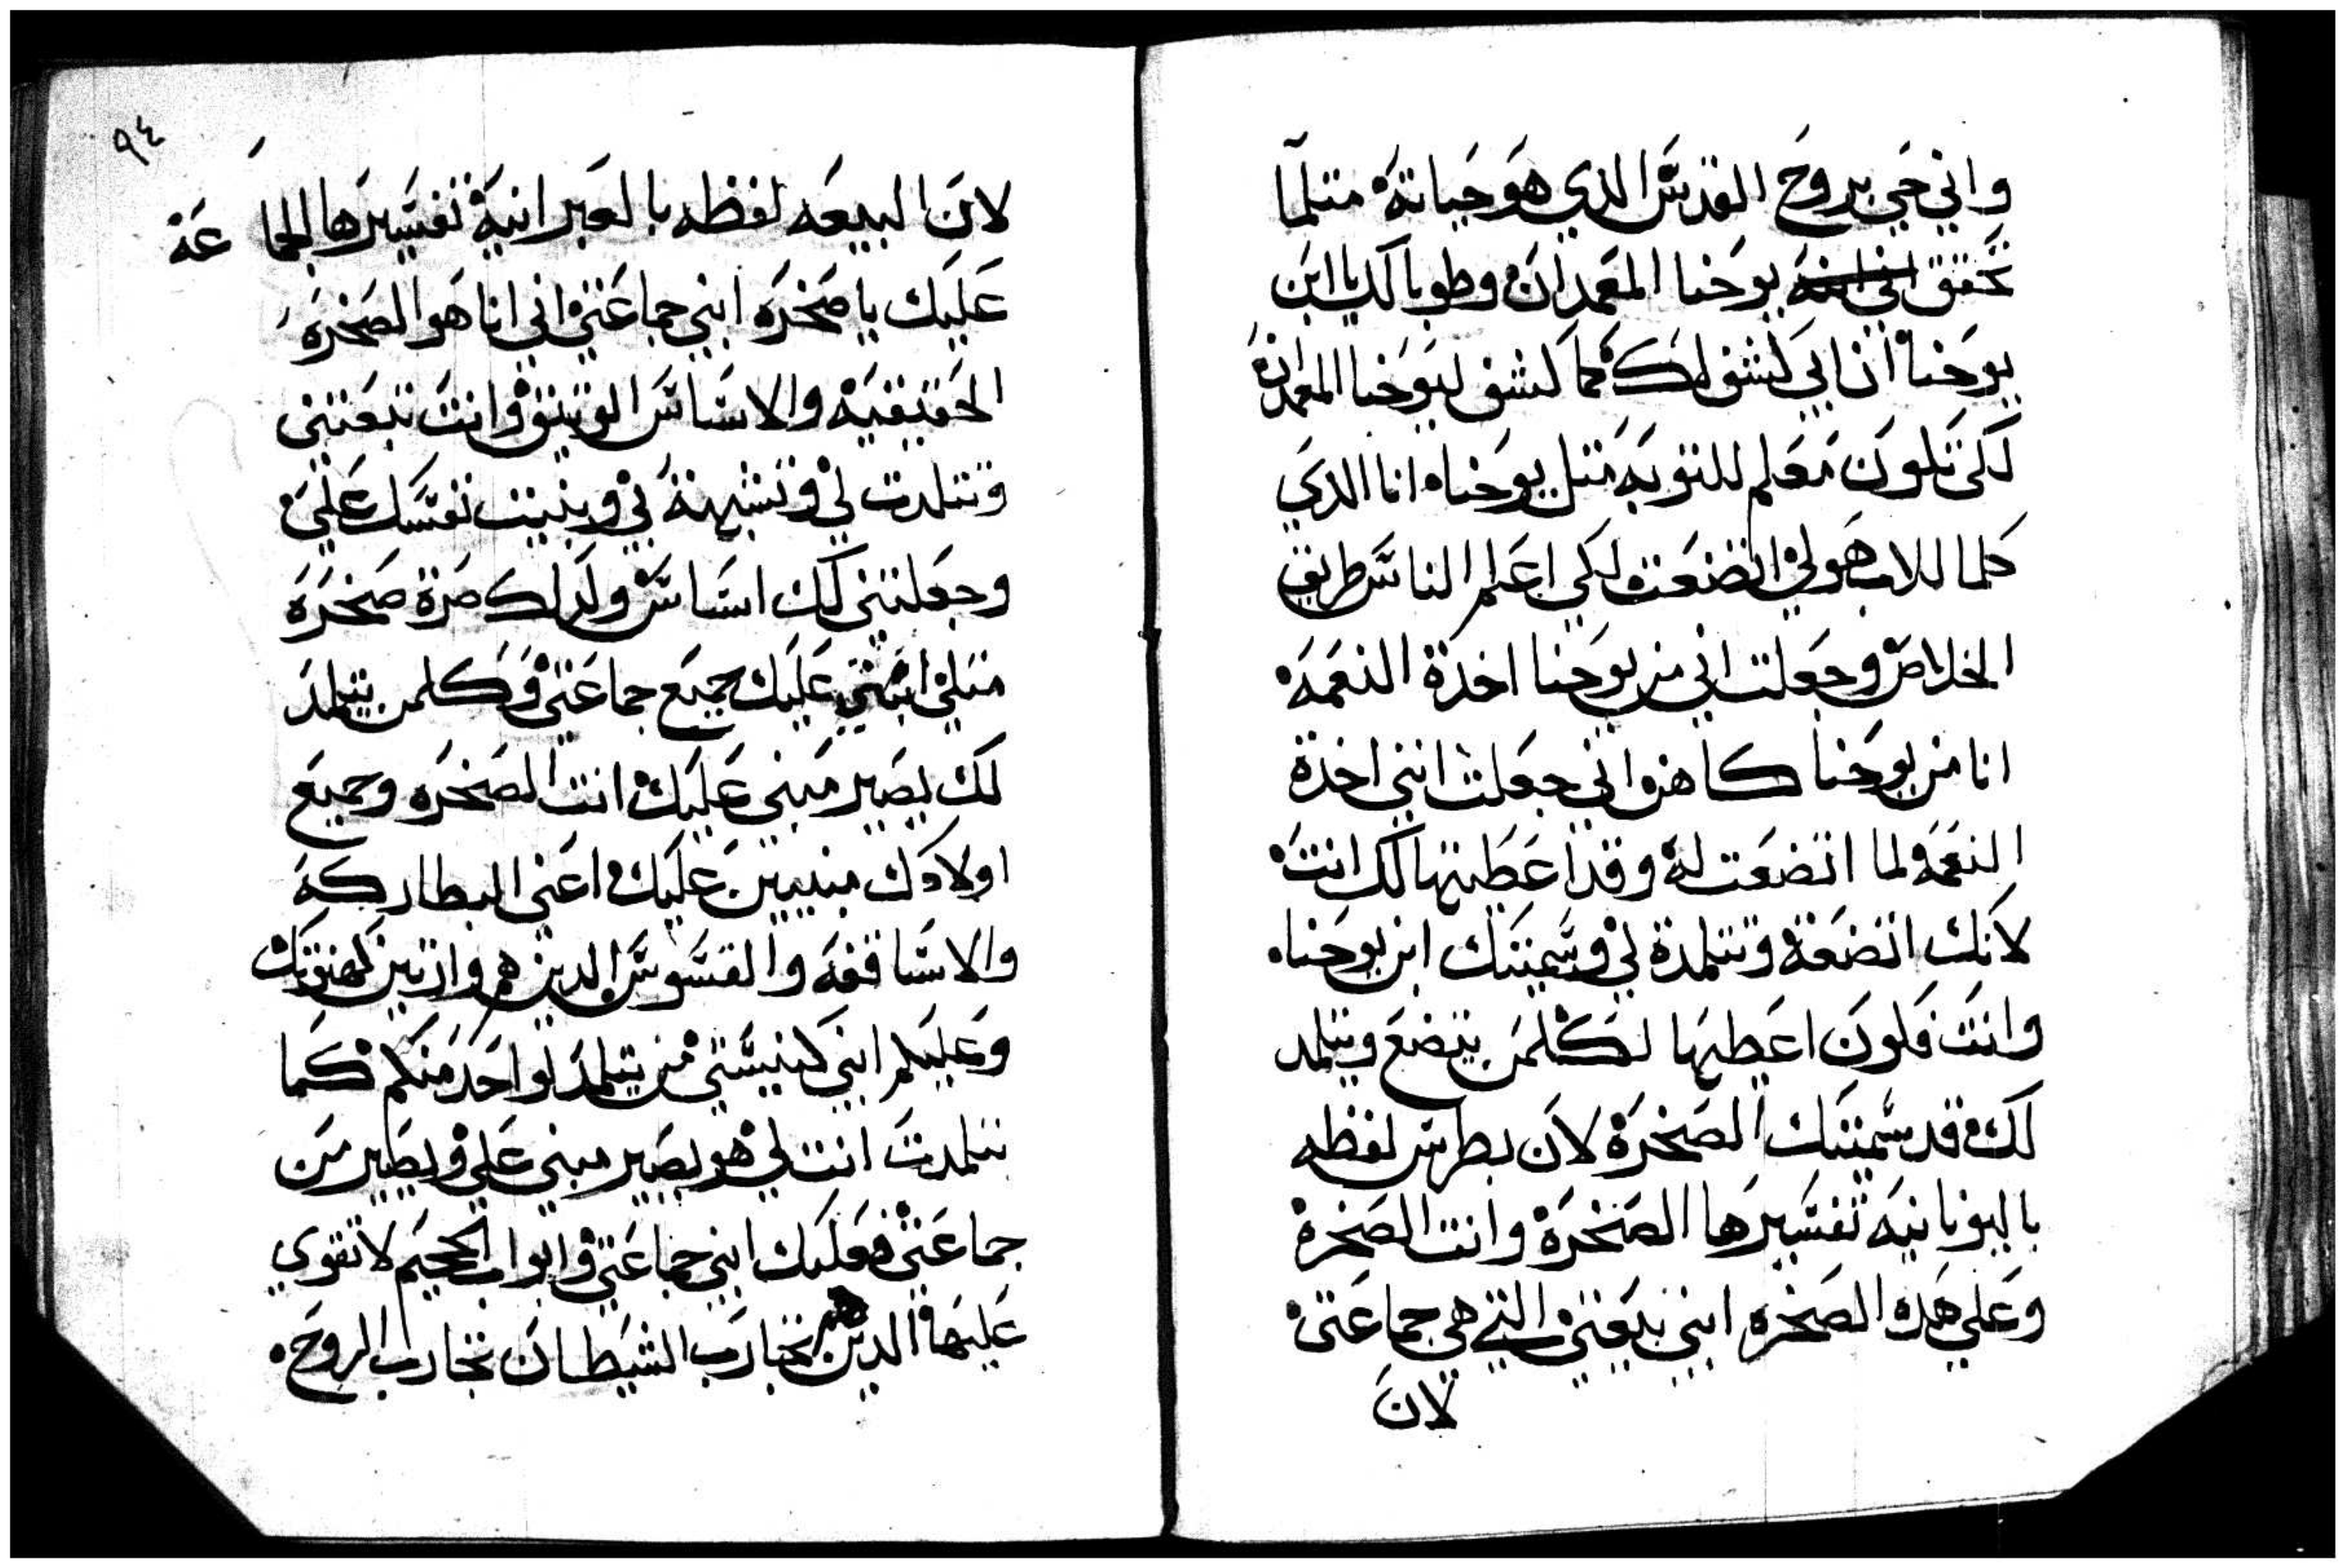 واني حي بروح القدس الدي هو حياته متلما
تحقق يوحنا المعمدان وطوباك يا ابن
يوحنا ان ابي كشف لك كما كشف ليوحنا المعمدان
لكي تكون معلم للتوبه متل يوحنا انا الدي
كلما للاب هو لي اتضعت لكي اعلم الناس طريق
الخلاص وجعلت اني من يوحنا اخدة النعمه
انا من يوحنا كاهن واني جعلت انني اخدة
النعمه لما اتضعت له وقد اعطيتها لك انت
لانك اتضعة وتتلمدة لي وسميتك ابن يوحنا
وانت فكون اعطيها لكلمن يتضع ويتلمد
لك قد سميتك الصخرة لان بطرس لفظه
باليونانيه تفسيرها الصخرة وانت الصخرة
وعلي هده الصخره ابني بيعتي التي هي جماعتي
لان
٩٤
لان البيعه لفظه بالعبرانية تفسيرها الجماعه
عليك يا صخره ابني جماعتي اني انا هو الصخره
الحقيقيه والاساس الوتيق وانت تبعتني
وتتلمدت لي وتشبهتة بي وبنيت نفسك علي
وجعلتني لك اساس ولدلك صرة صخرة
متلي ابني عليك جميع جماعتي وكلمن يتلمد
لك يصير مبني عليك انت الصخره وجميع
اولادك مبنيين عليك اعني البطاركه
والاساقفه والقسوس الدين هم وارتين كهنوتك
وعليكم ابني كنيستي من يتلمد لواحد منكم كما
تتلمدت انت لي هو يصير مبني علي ويصير من
جماعتي فعليك ابني جماعتي وابواب الجحيم لا تقوي
عليها الدين هم تجارب الشيطان تجارب الروح